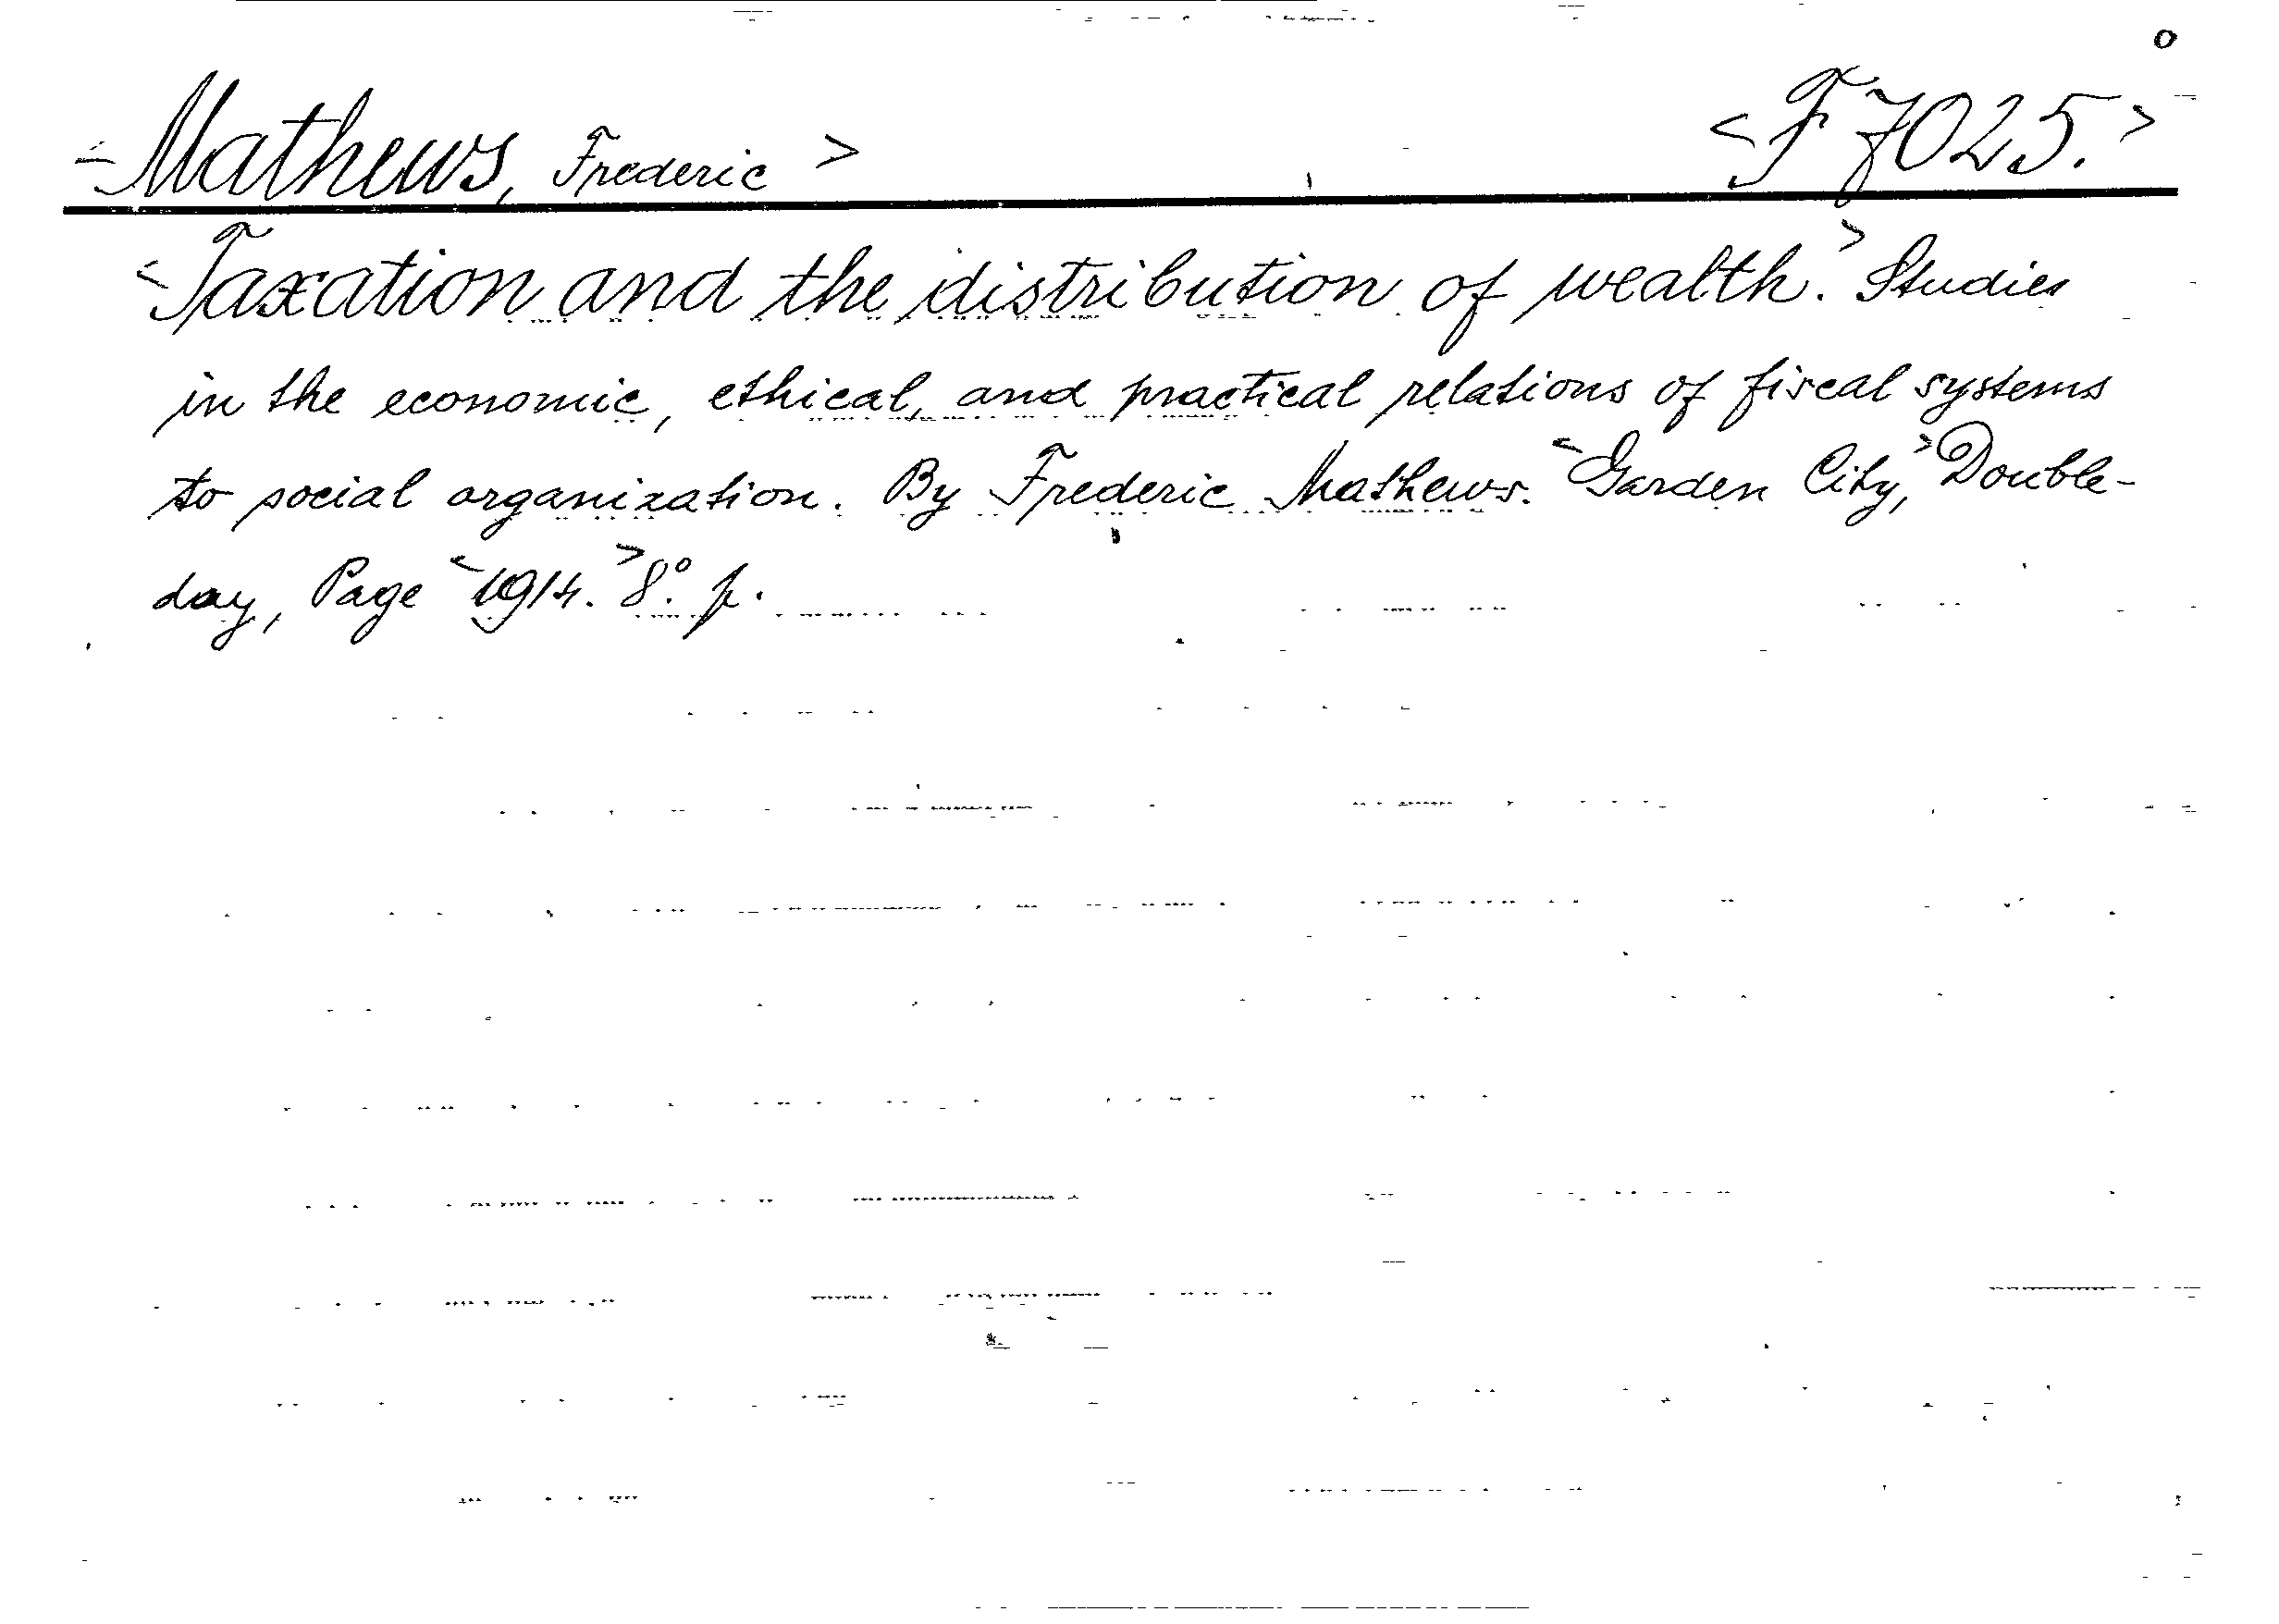 <Mathews, Frederic> <F 7025.>
<Taxation and the distribution of wealth.> Studies
in the economic, ethical, and practical relations of fiscal systems
to social organization. By Frederic Mathews. <Garden City,> Double-
day, Page <1914.> 8°. p.